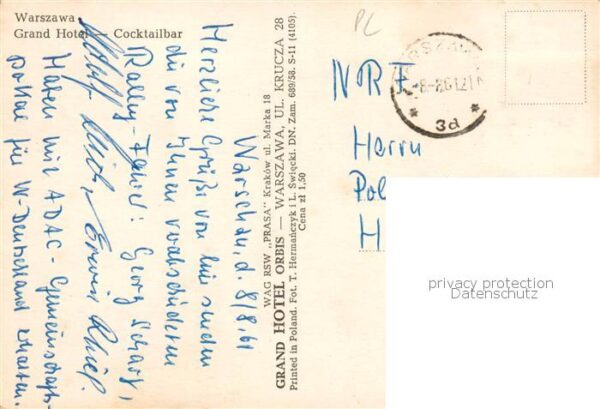 Warszawa
Grand Hotel — Cocktailbar
Warschau, d. 8/8.61
Herzliche Grüße von hier senden
die von Ihnen verabschiedeten
Ralley-Fahrer! Georg Scharf,
Erwin
Haben mit ADAC-Gemeinschafts-
pokal für W-Deutschland erhalten.
WAG RSW „PRASA” Kraków ul. Marka 18
GRAND HOTEL ORBIS — WARSZAWA, UL. KRUCZA 28
Printed in Poland. Fot. T. Hermańczyk i L. Święcki. DN. Zam. 689/58. S-11 (4105).
Cena zł 1,50
PL
3d
NRF
Herrn
Pol
H
privacy protection
Datenschutz